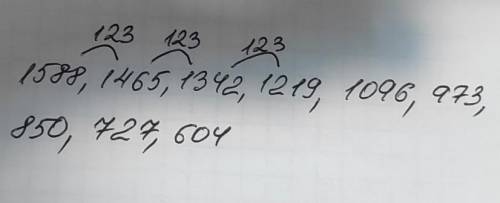 123 123 123
1588, 1465, 1342, 1219, 1096, 973,
850, 727, 604